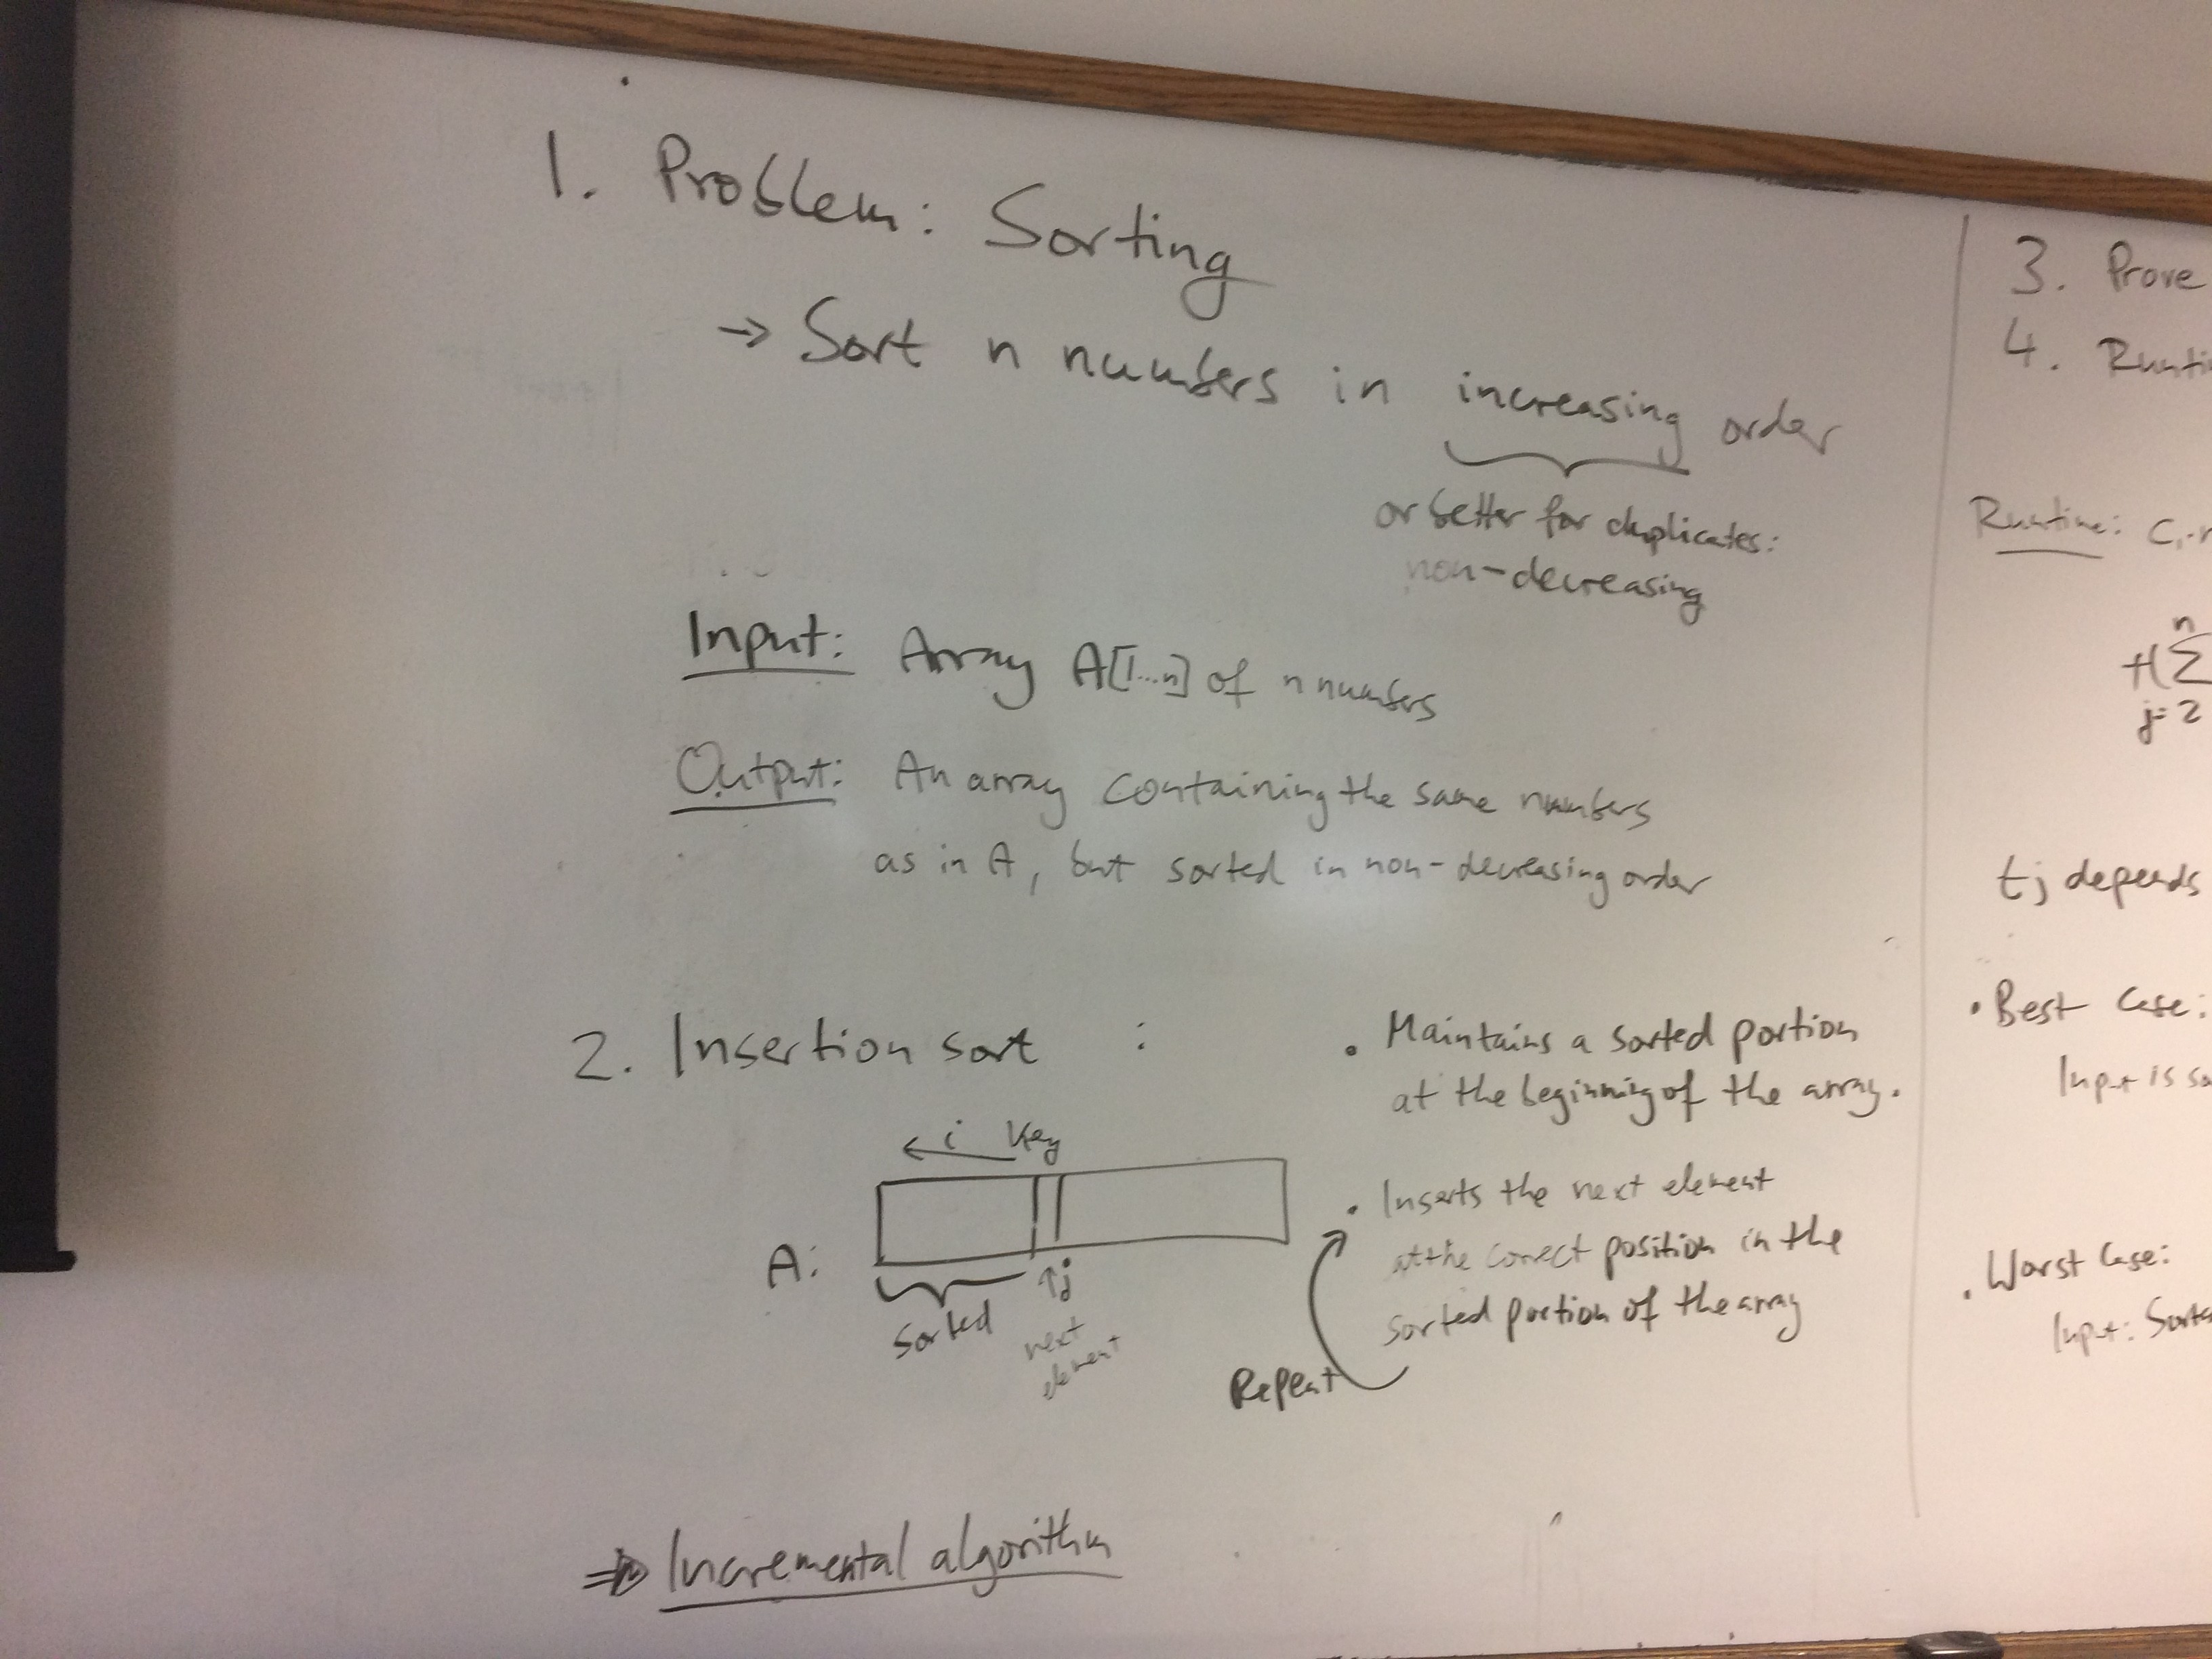 1. Problem: Sorting
→ Sort n numbers in increasing order
or better for duplicates:
non-decreasing
Input: Array A[1...n] of n numbers
Output: An array containing the same numbers
as in A, but sorted in non-decreasing order
2. Insertion sort :
• Maintains a sorted portion
at the beginning of the array.
← i Key
A:
sorted
↑j
next
element
• Inserts the next element
at the correct position in the
sorted portion of the array
Repeat
⇒ Incremental algorithm
3. Prove
4.
Runtime: C₁·
n
+(Σ
j=2
tj depends
• Best case:
Input is
• Worst case:
Input: